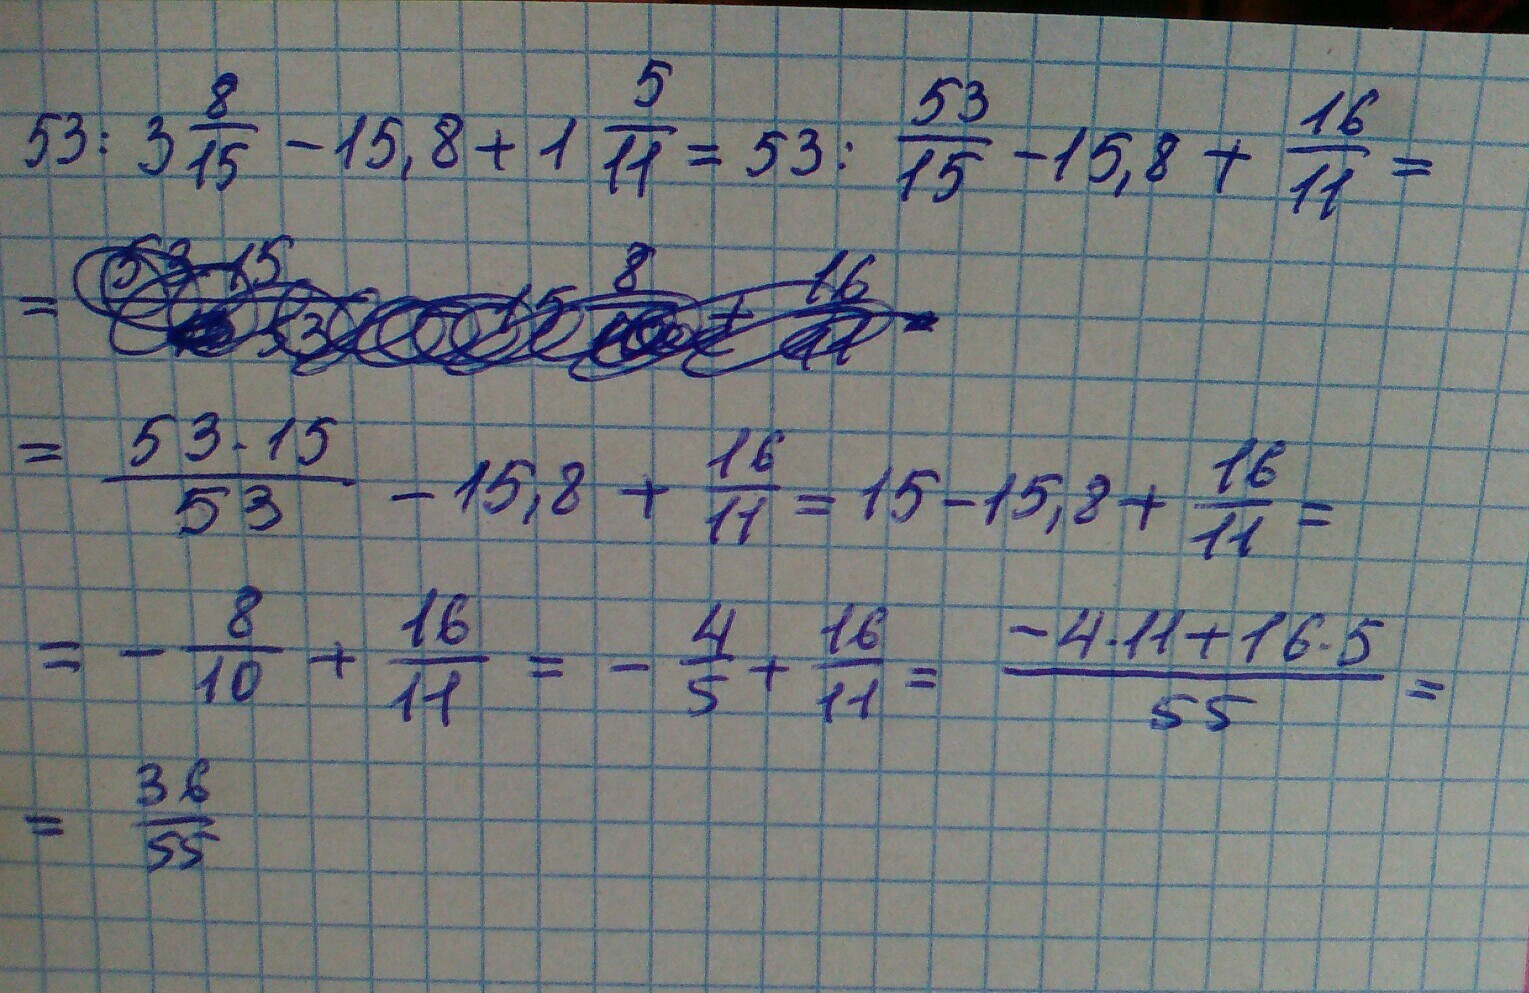 53 : 3 8/15 - 15,8 + 1 5/11 = 53 : 53/15 - 15,8 + 16/11 =
= 53·15/53 - 15,8 + 16/11 = 15 - 15,8 + 16/11 =
= - 8/10 + 16/11 = - 4/5 + 16/11 = -4·11+16·5/55 =
= 36/55